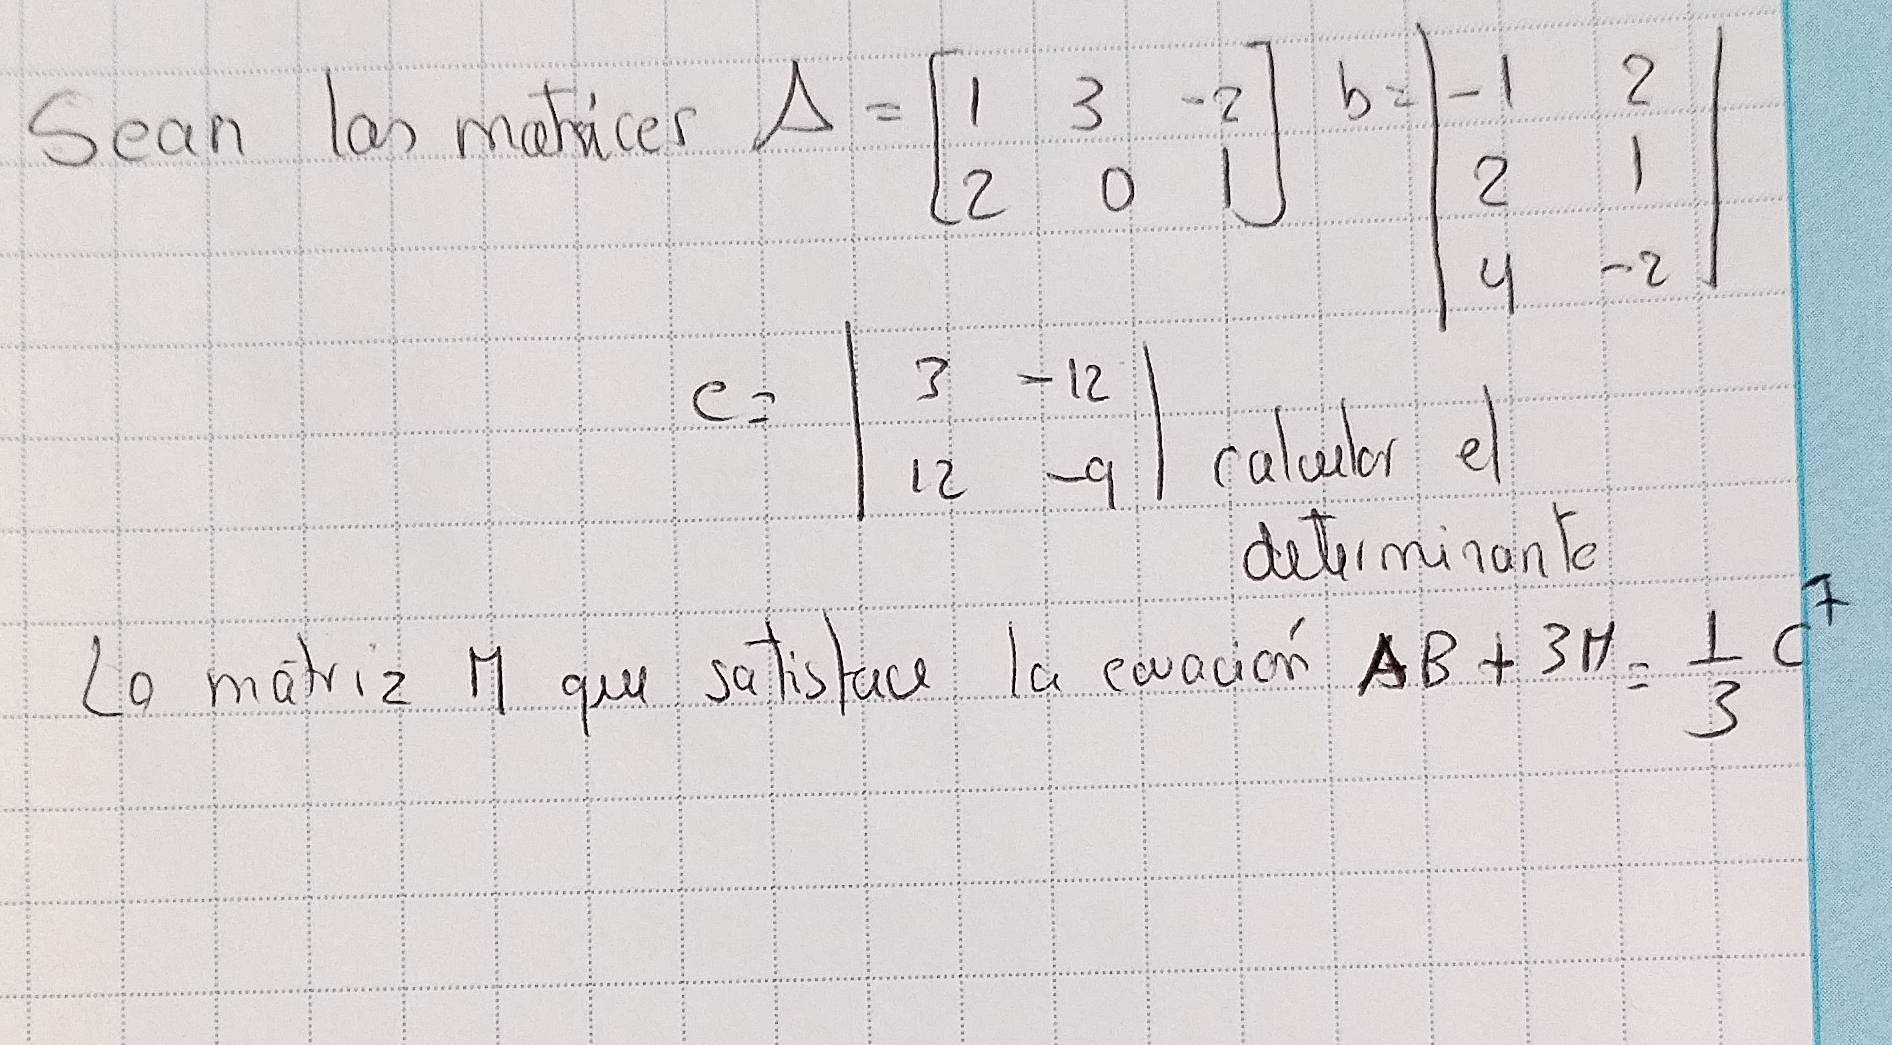 Sean las matrices A = [1 3 -2] b = |-1 2|
[2 0 1] |2 1|
|4 -2|
c = |3 -12|
|12 -9| calcular el
determinante
La matriz M que satisface la ecuación AB + 3M = 1/3 C^T